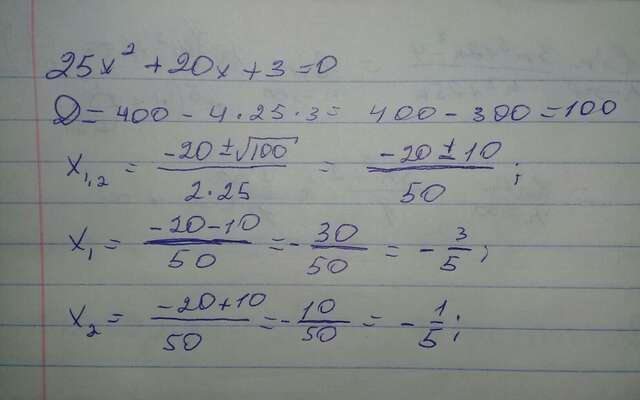 25x² + 20x + 3 = 0
D = 400 - 4 · 25 · 3 = 400 - 300 = 100
x₁,₂ = (-20 ± √100)/(2·25) = (-20 ± 10)/50 ;
x₁ = (-20-10)/50 = - 30/50 = - 3/5 ;
x₂ = (-20+10)/50 = - 10/50 = - 1/5 ;